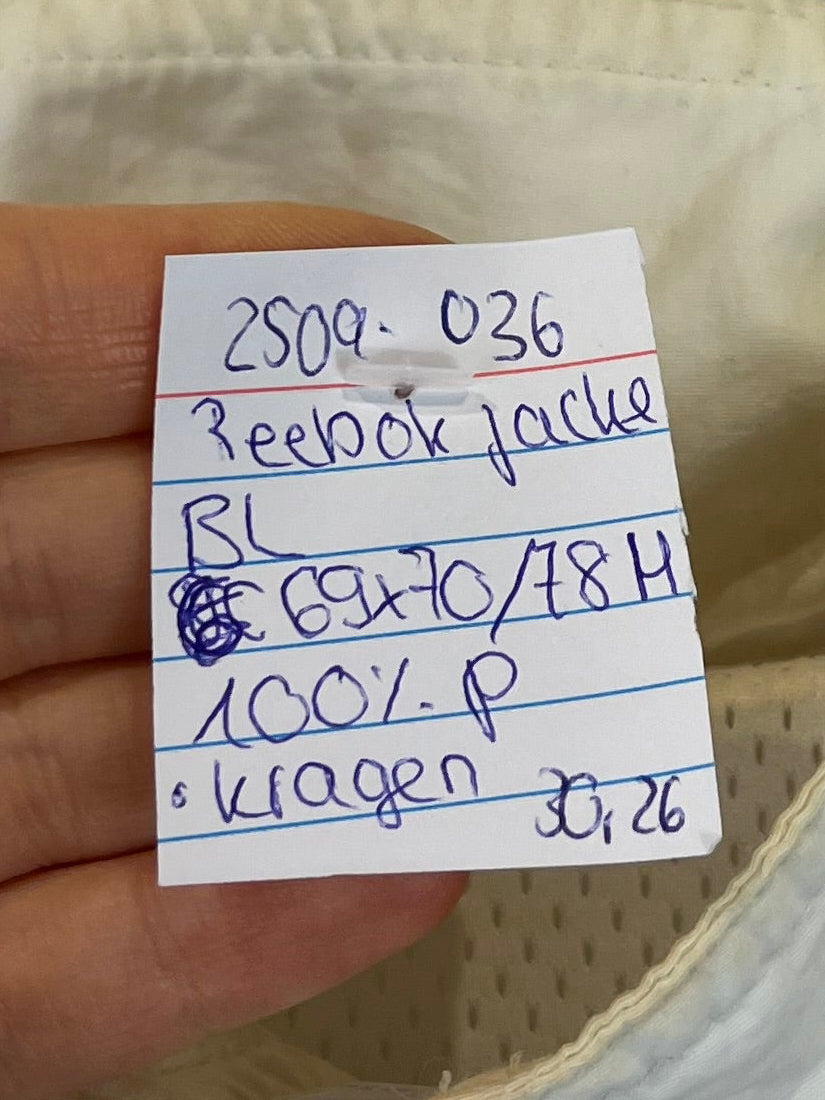 2509. 036
Reebok jacke
BL
69x70/78 H
100% P
• kragen
30,26